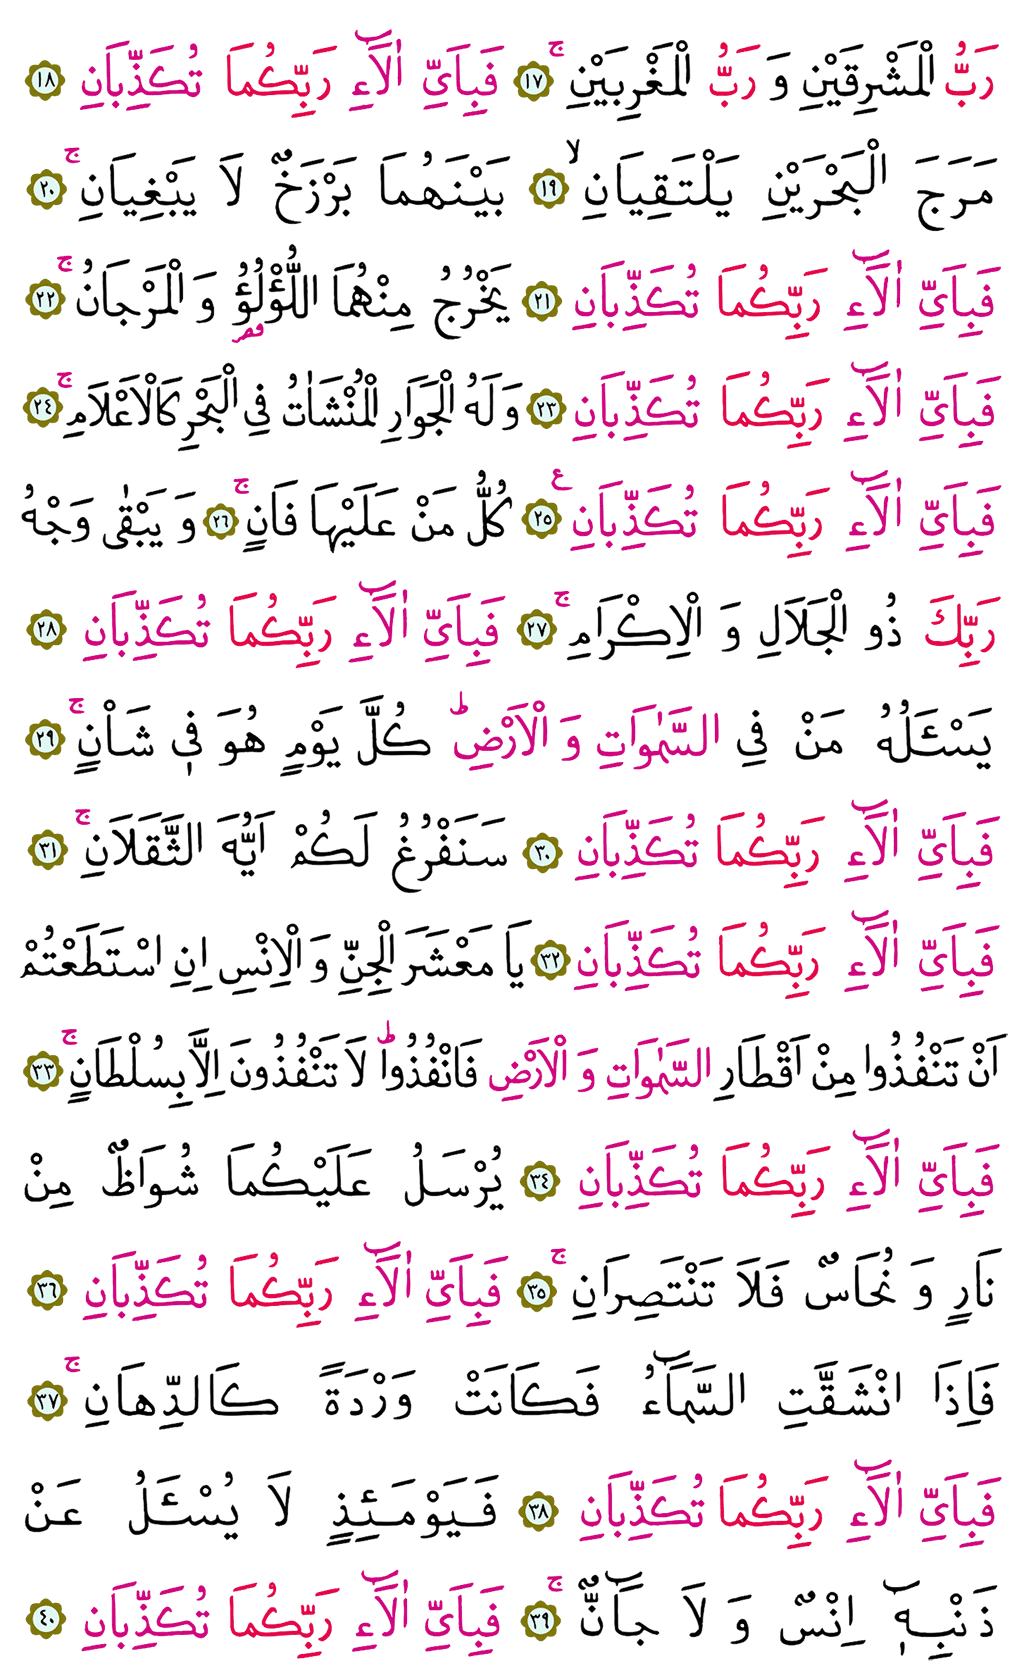 رَبُّ الْمَشْرِقَيْنِ وَ رَبُّ الْمَغْرِبَيْنِۚ ﴿١٧﴾ فَبِاَيِّ اٰلَٓاءِ رَبِّكُمَا تُكَذِّبَانِ ﴿١٨﴾
مَرَجَ الْبَحْرَيْنِ يَلْتَقِيَانِۙ ﴿١٩﴾ بَيْنَهُمَا بَرْزَخٌ لَا يَبْغِيَانِۚ ﴿٢٠﴾
فَبِاَيِّ اٰلَٓاءِ رَبِّكُمَا تُكَذِّبَانِ ﴿٢١﴾ يَخْرُجُ مِنْهُمَا اللُّؤْلُؤُ وَ الْمَرْجَانُۚ ﴿٢٢﴾
فَبِاَيِّ اٰلَٓاءِ رَبِّكُمَا تُكَذِّبَانِ ﴿٢٣﴾ وَلَهُ الْجَوَارِ الْمُنْشَاٰتُ فِي الْبَحْرِ كَالْاَعْلَامِۚ ﴿٢٤﴾
فَبِاَيِّ اٰلَٓاءِ رَبِّكُمَا تُكَذِّبَانِ ع ﴿٢٥﴾ كُلُّ مَنْ عَلَيْهَا فَانٍۚ ﴿٢٦﴾ وَ يَبْقٰى وَجْهُ
رَبِّكَ ذُو الْجَلَالِ وَ الْاِكْرَامِۚ ﴿٢٧﴾ فَبِاَيِّ اٰلَٓاءِ رَبِّكُمَا تُكَذِّبَانِ ﴿٢٨﴾
يَسْـَٔلُهُ مَنْ فِي السَّمٰوَاتِ وَ الْاَرْضِۜ كُلَّ يَوْمٍ هُوَ فٖي شَاْنٍۚ ﴿٢٩﴾
فَبِاَيِّ اٰلَٓاءِ رَبِّكُمَا تُكَذِّبَانِ ﴿٣٠﴾ سَنَفْرُغُ لَكُمْ اَيُّهَ الثَّقَلَانِۚ ﴿٣١﴾
فَبِاَيِّ اٰلَٓاءِ رَبِّكُمَا تُكَذِّبَانِ ﴿٣٢﴾ يَا مَعْشَرَ الْجِنِّ وَ الْاِنْسِ اِنِ اسْتَطَعْتُمْ
اَنْ تَنْفُذُوا مِنْ اَقْطَارِ السَّمٰوَاتِ وَ الْاَرْضِ فَانْفُذُواۜ لَا تَنْفُذُونَ اِلَّا بِسُلْطَانٍۚ ﴿٣٣﴾
فَبِاَيِّ اٰلَٓاءِ رَبِّكُمَا تُكَذِّبَانِ ﴿٣٤﴾ يُرْسَلُ عَلَيْكُمَا شُوَاظٌ مِنْ
نَارٍ وَ نُحَاسٌ فَلَا تَنْتَصِرَانِۚ ﴿٣٥﴾ فَبِاَيِّ اٰلَٓاءِ رَبِّكُمَا تُكَذِّبَانِ ﴿٣٦﴾
فَاِذَا انْشَقَّتِ السَّمَٓاءُ فَكَانَتْ وَرْدَةً كَالدِّهَانِۚ ﴿٣٧﴾
فَبِاَيِّ اٰلَٓاءِ رَبِّكُمَا تُكَذِّبَانِ ﴿٣٨﴾ فَيَوْمَئِذٍ لَا يُسْـَٔلُ عَنْ
ذَنْبِهٖٓ اِنْسٌ وَ لَا جَٓانٌّۚ ﴿٣٩﴾ فَبِاَيِّ اٰلَٓاءِ رَبِّكُمَا تُكَذِّبَانِ ﴿٤٠﴾